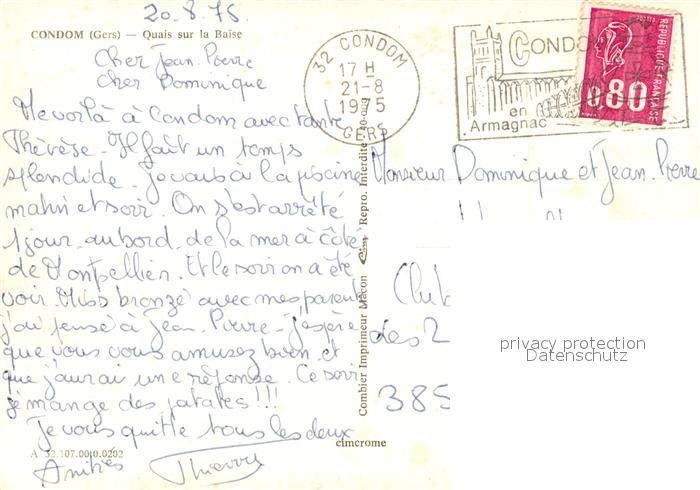 20.8.75
CONDOM (Gers) — Quais sur la Baïse
Cher Jean-Pierre
cher Dominique
Me voilà à Condom avec tante
Thérèse. Il fait un temps
splendide. Je vais à la piscine
matin et soir. On s'est arrêté
1 jour au bord de la mer à côté
de Montpellier. Et le soir on a été
voir Miss bronze avec mes parents
j'ai pensé à Jean-Pierre. J'espère
que vous vous amusez bien et
que j'aurai une réponse. Ce soir
je mange des patates !!!
Je vous quitte tous les deux
Amitiés Thierry
A 32.107.00 0.0202
cimcrome
Combier Imprimeur Macon
Repro. Interdite
32 CONDOM
17 H
21-8
1975
GERS
CONDOM
en
Armagnac
REPUBLIQUE FRANÇAISE
0,80
Monsieur Dominique et Jean-Pierre
Club
des 2
385
privacy protection
Datenschutz